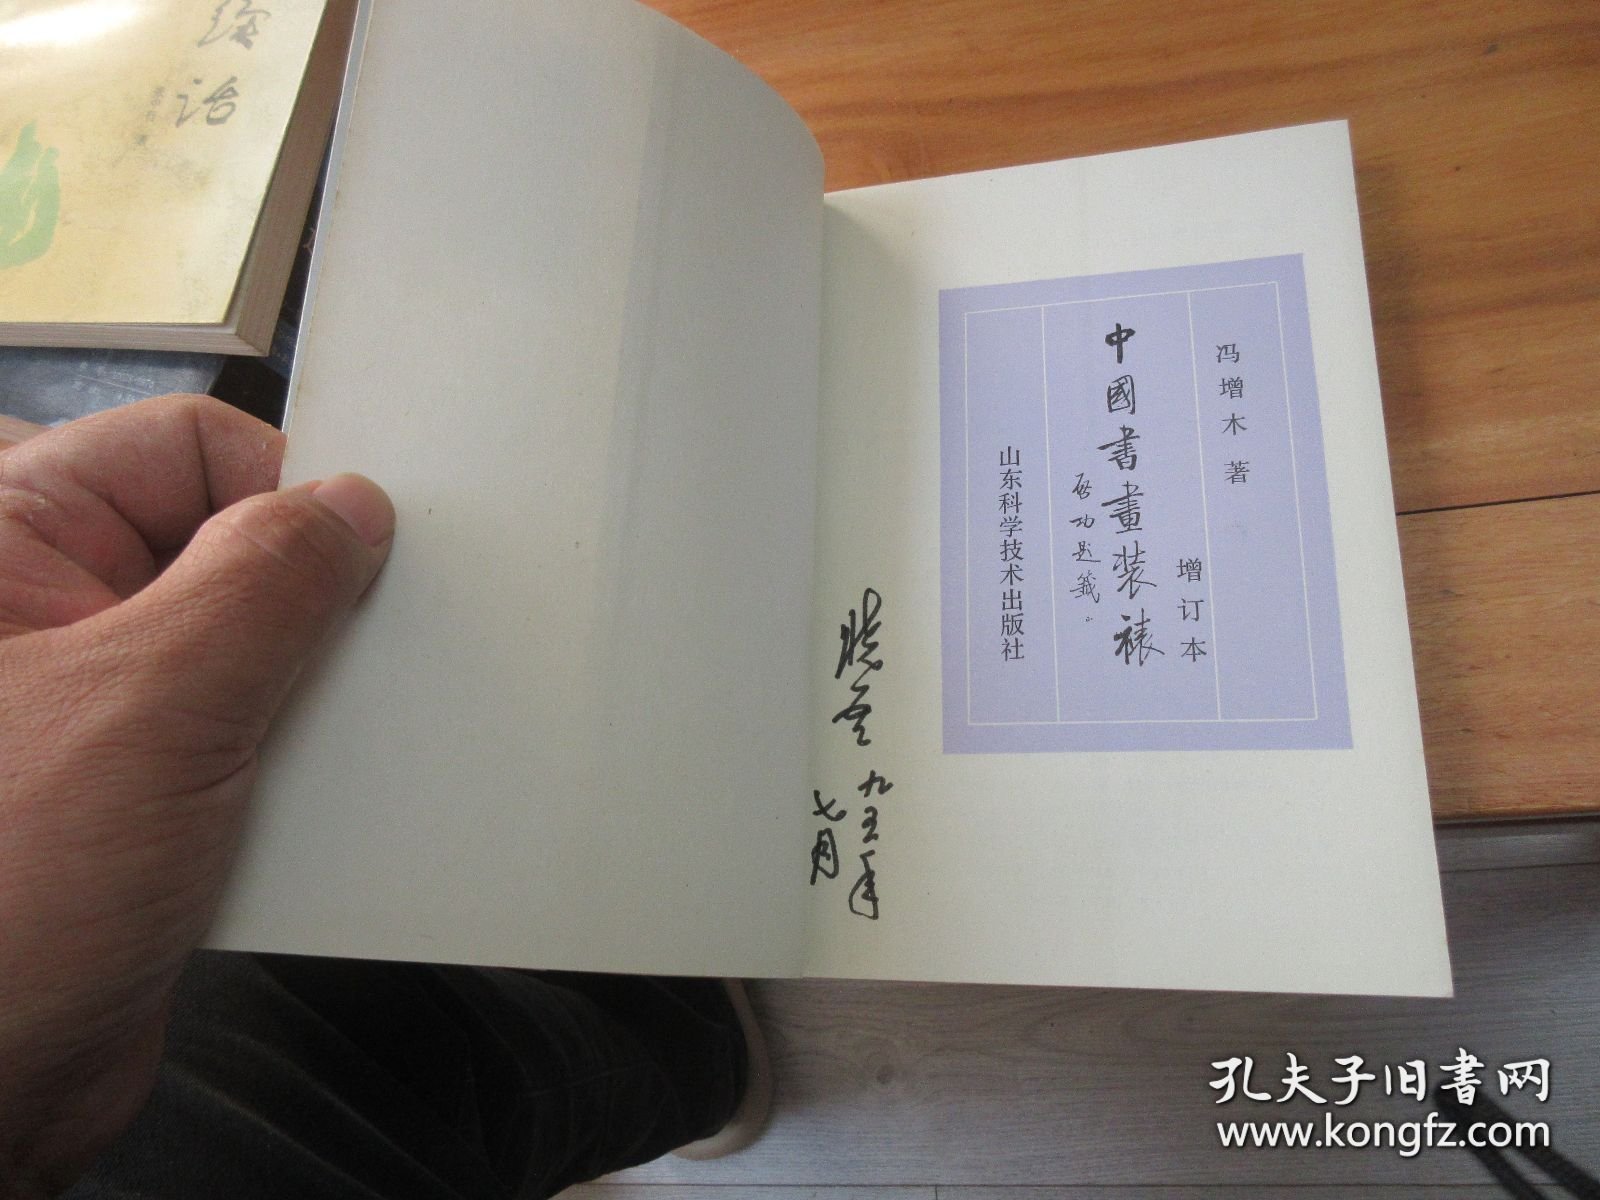 冯增木 著
中國書畫裝裱
增订本
启功题籤
山东科学技术出版社
晓雲
九五年
七月
论
话
孔夫子旧书网
www.kongfz.com